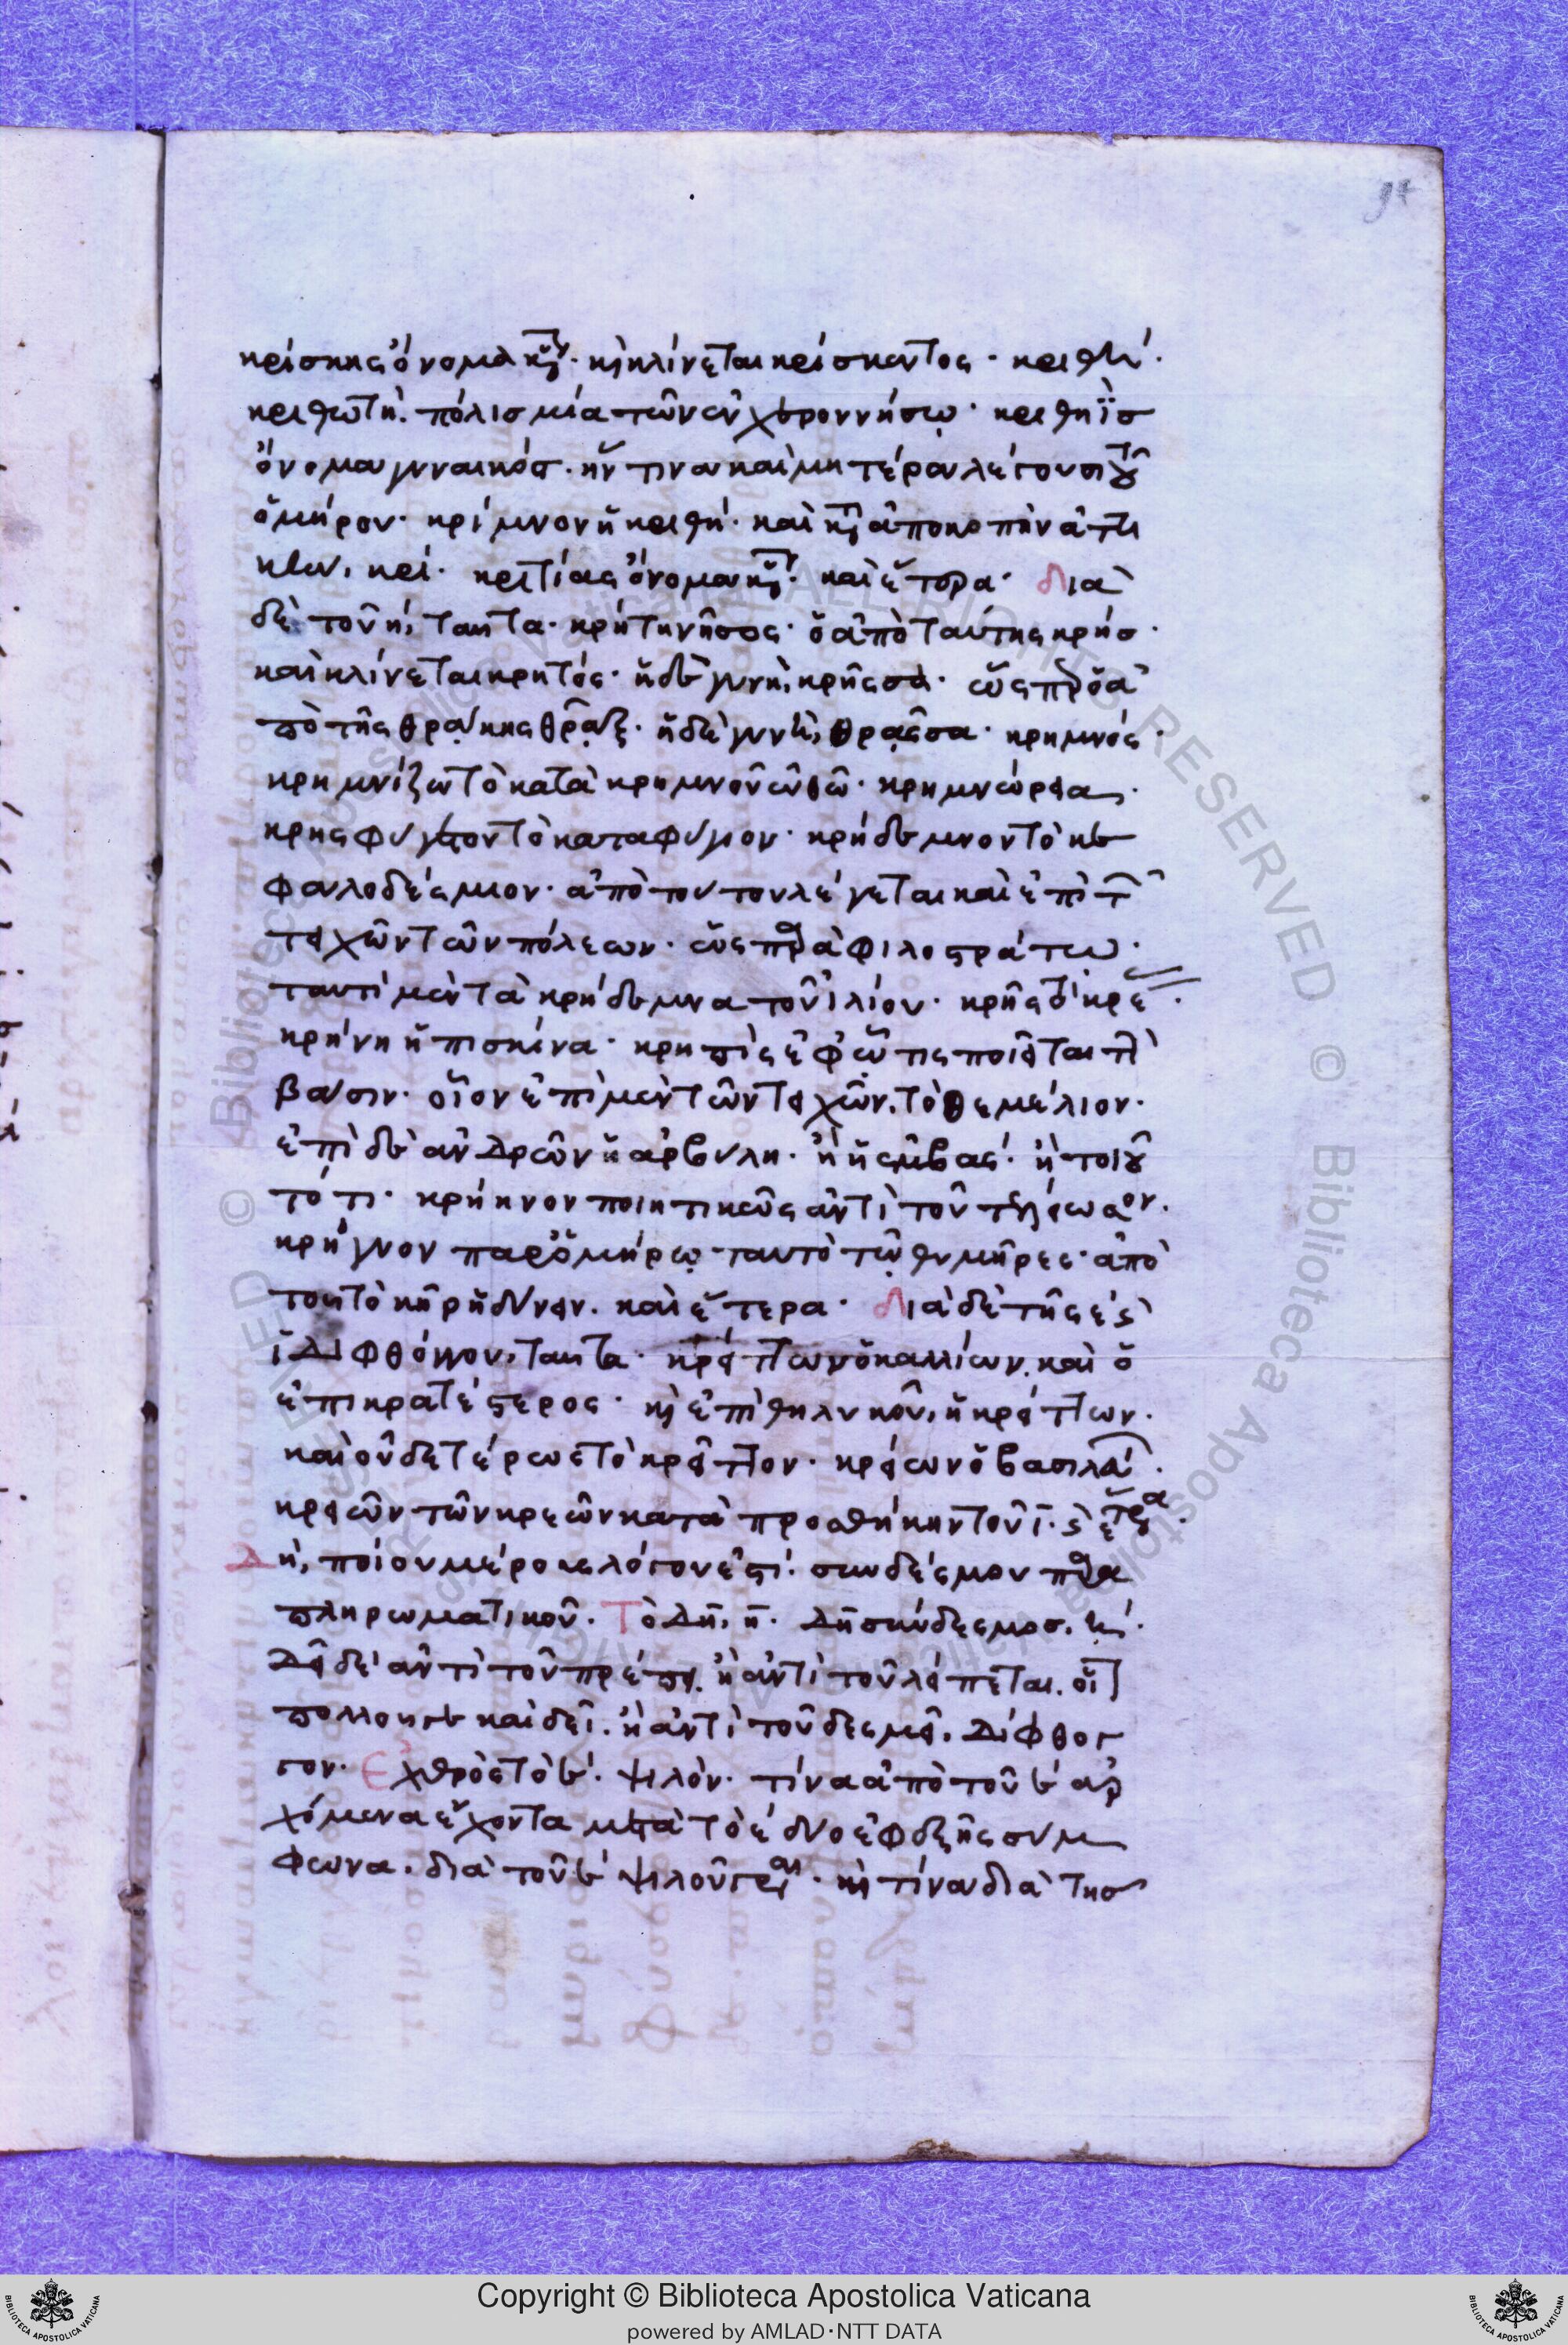 κρίσκης ὄνομα κύ· κὶ κλίνεται κρίσκεντος· κριθή·
κριθωτὴ· πόλις μία τῶν ἐν χερρονήσω· κριθηῒς
ὄνομα γυναικός· ἥν τινα καὶ μητέρα λέγουσι τοῦ
ὁμήρου· κρίμνον ἡ κριθή· καὶ κτ ἀποκοπὴν ἀττι
κὴν, κρί· κριτίας ὄνομα κύ· καὶ ἕτερα· Διὰ
δὲ τοῦ η, ταῦτα· κρήτη νῆσος· ὁ ἀπὸ ταύτης κρής·
καὶ κλίνεται κρητός· ἡ δὲ γυνὴ, κρῆσσα· ὥσπερ ὁ ἀ
πὸ τῆς θράκης θρᾷξ· ἡ δὲ γυνὴ, θρᾷσσα· κρημνός·
κρημνίζω τὸ κατὰ κρημνοῦ ὠθῶ· κρημνώρεια·
κρησφύγετον τὸ καταφύγιον· κρήδεμνον τὸ κε
φαλοδέσμιον· ἀπὸ τούτου λέγεται καὶ ἐπὶ τ
τειχῶν τῶν πόλεων· ὡς παρὰ φιλοστράτω·
ταυτὶ μὲν τὰ κρήδεμνα τοῦ ἰλίου· κρῆς τ κρέ
κρήνη ἡ πισκίνα· κρηπὶς ἐφ' ᾧ τις ποιεῖται τὴ
βάσιν· οἷον ἐπὶ μὲν τῶν τειχῶν, τὸ θεμέλιον·
ἐπὶ δὲ ἀνδρῶν ἡ ἀρβύλη· ἢ ἡ ἐμβάς· ἤ τοιοῦ
τό τι· κρήηνον ποιητικῶς ἀντὶ τοῦ τελείωσον·
κρήγυον παρ' ὁμήρω· ταυτὸ τῷ θυμῆρες· ἀπὸ
τοῦ τὸ κῆρ ἡδύνειν· καὶ ἕτερα· Διὰ δὲ τῆς ει
διφθόγγου, ταῦτα· κρείττων ὁ καλλίων, καὶ ὁ
ἐπικρατέστερος· κὶ ἐπὶ θηλυκοῦ, ἡ κρείττων·
καὶ οὐδετέρως τὸ κρεῖττον· κρείων ὁ βασιλεύ·
κρειῶν τῶν κρεῶν κατὰ προσθήκην τοῦ ϊ· κ ἕτερα·
Δὴ, ποῖον μέρος λόγου ἐστί· συνδέσμου παρα
πληρωματικοῦ· Τὸ Δὴ, η· Δὴ σύνδεσμος, η·
Δεῖ δὲ ἀντὶ τοῦ πρέπει, ἢ ἀντὶ τοῦ λείπεται, οἷ
πολλοῦ γε καὶ δεῖ· ἢ ἀντὶ τοῦ δεσμεῖ, Δίφθογ
γον· Ἐχθρὸς τὸ ε· ψιλόν· τίνα ἀπὸ τοῦ ε ἀρ
χόμενα ἔχοντα μετὰ τὸ ε δύο ἐφεξῆς σύμ
φωνα, διὰ τοῦ ε ψιλοῦ γρ· κὶ τίνα διὰ τῆς
Copyright © Biblioteca Apostolica Vaticana
powered by AMLAD·NTT DATA